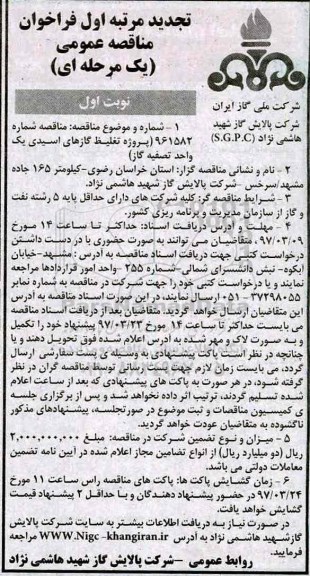 تجدید مرتبه اول فراخوان
مناقصه عمومی
(یک مرحله ای)
شرکت ملی گاز ایران
شرکت پالایش گاز شهید
هاشمی نژاد (S.G.P.C)
نوبت اول
۱ – شماره و موضوع مناقصه: مناقصه شماره
۹۶۱۵۸۲ (پروژه تغلیظ گازهای اسیدی یک
واحد تصفیه گاز)
۲ – نام و نشانی مناقصه گزار: استان خراسان رضوی-کیلومتر ۱۶۵ جاده
مشهد/سرخس -شرکت پالایش گاز شهید هاشمی نژاد.
۳ – شرایط مناقصه گر: کلیه شرکت های دارای حداقل پایه ۵ رشته نفت
و گاز از سازمان مدیریت و برنامه ریزی کشور.
۴ – مهلت و آدرس دریافت اسناد: حداکثر تا ساعت ۱۴ مورخ
۹۷/۰۳/۰۹، متقاضیان می توانند به صورت حضوری با در دست داشتن
درخواست کتبی جهت دریافت اسناد مناقصه به آدرس : مشهد-خیابان
آبکوه- نبش دانشسرای شمالی-شماره ۲۵۵ -واحد امور قراردادها مراجعه
نمایند و یا درخواست کتبی خود را جهت شرکت در مناقصه به شماره نمابر
۳۷۲۹۸۰۵۵ -۰۵۱ ارسال نمایند، در این صورت اسناد مناقصه به آدرس
این متقاضیان ارسال خواهد گردید. متقاضیان بعد از دریافت اسناد مناقصه
می بایست حداکثر تا ساعت ۱۴ مورخ ۹۷/۰۳/۲۳ پیشنهاد خود را تکمیل
و به صورت لاک و مهر شده به آدرس اعلام شده فوق تحویل دهند و یا
چنانچه در نظر است پاکت پیشنهادی به وسیله ی پست سفارشی ارسال
گردد، می بایست زمان لازم جهت پست رسانی توسط مناقصه گران در نظر
گرفته شود، در هر صورت به پاکت های پیشنهادی که بعد از ساعت اعلام
شده تسلیم گردند، ترتیب اثر داده نخواهد شد و پس از برگزاری جلسه
ی کمیسیون مناقصات و ثبت موضوع در صورتجلسه، پیشنهادهای مذکور
ناگشوده به متقاضیان عودت خواهد گردید.
۵ – میزان و نوع تضمین شرکت در مناقصه: مبلغ ۲,۰۰۰,۰۰۰,۰۰۰
ریال (دو میلیارد ریال) از انواع تضامین مجاز اعلام شده در آیین نامه تضمین
معاملات دولتی می باشد.
۶ – زمان گشایش پاکت ها: پاکت های مناقصه راس ساعت ۱۱ مورخ
۹۷/۰۳/۲۴ در حضور پیشنهاد دهندگان و با حداقل ۲ پیشنهاد قیمت
گشایش خواهد یافت.
در صورت نیاز به دریافت اطلاعات بیشتر به سایت شرکت پالایش
گاز شهید هاشمی نژاد به آدرس WWW.Nigc-khangiran.ir مراجعه
فرمایید.
روابط عمومی -شرکت پالایش گاز شهید هاشمی نژاد